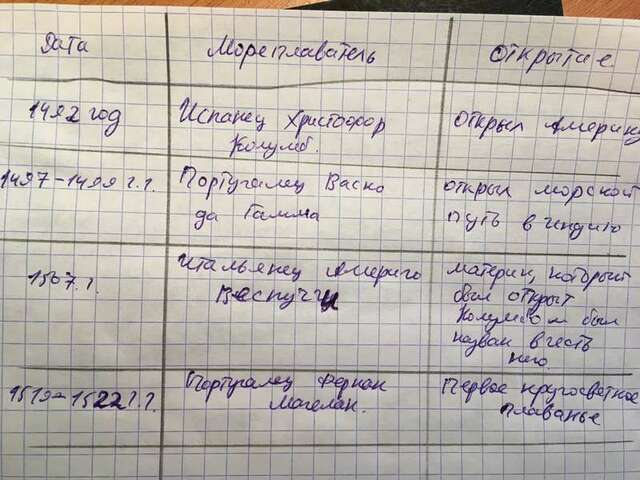 Дата Мореплаватель Открытие
1492 год Испанец Христофор Открыл Америку
Колумб.
1497-1499 г.г. Португалец Васко открыл морской
да Гамма путь в Индию
1507 г. Итальянец Америго материк, который
Веспуччи был открыт
Колумбом был
назван в честь
него.
1519-1522 г.г. Португалец Фернан Первое кругосветное
Магелан. плаванье